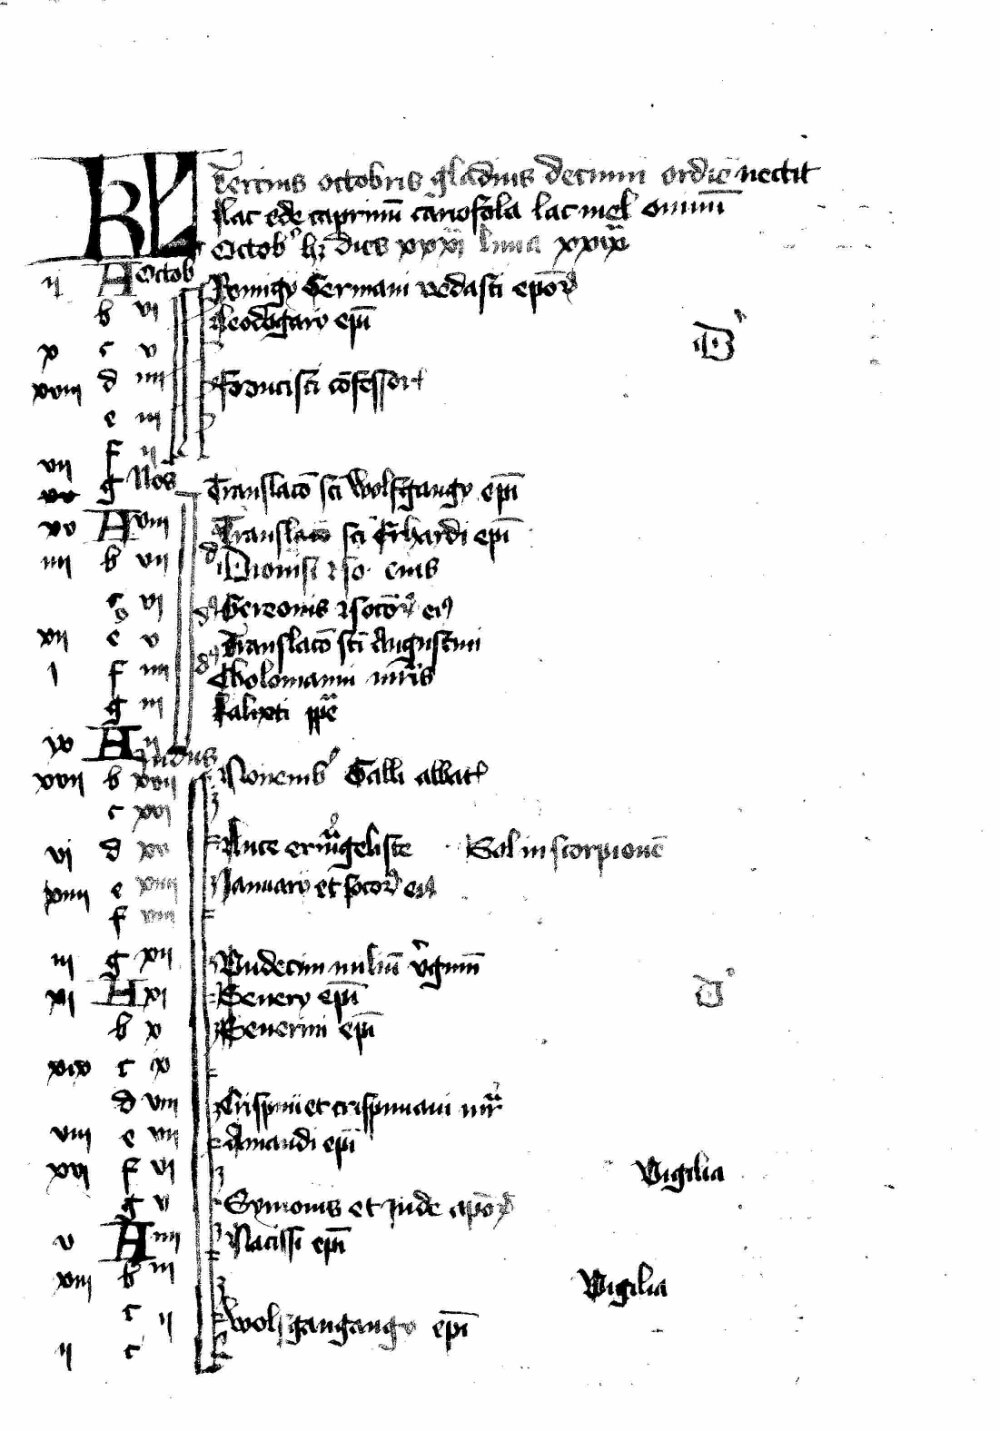 KL Tercius octobris gladius decimū ordīe nectit
lac ede caprinū lac mel
Octob hꝫ dies xxxi luna xxix
ij A Octob Remigy Germani vedasti epōꝝ
b vi Leodegary epī
x c v D
xviii d iiii Francisci cōfessor
e iii
vii f ii
xv g Nos Translacō sci Wolfgangy epī
xv A viii Translacō sci Erhardi epī
iiii b vii Dionisi so eius
c vi Gereonis socōꝝ ei9
xii e v Translacō sci Augustini
i f iiii Cholomanni mrīs
g iii Kalixti ppe
ix A ii
Ydus
xvii b xvii Novemb Galli abbat
c xvi
vi d xv Luce ewāgeliste Sol in scorpionē
xiiii e xiiii January et socoꝝ ei9
f xiii
iii g xii Undecim miliū v̄ginū
xi A xi Severy epī
b x Severini epī
xix c ix
d viii Crispini et crispiniani mr
viii e vii Amandi epī
xvi f vi Vigilia
g v Symonis et Jude apōꝝ
v A iiii Nacissi epī
xiii b iii Vigilia
c ii Wolfgangangy epī
ii c